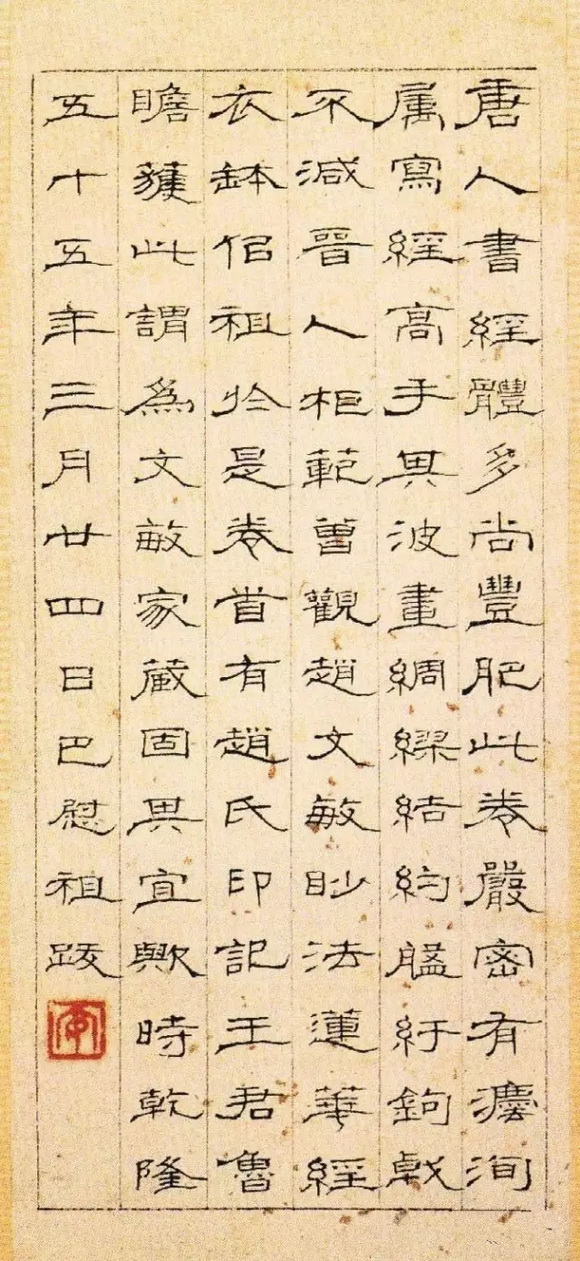 唐人書經體多尚豐肥此卷嚴密有灋洵
属寫經高手其波畫綢繆結約紆鉤戟
不減晉人柜範曽觀趙文敏眇法蓮華經
衣缽佀祖於是卷首有趙氏印記王君魯
瞻獲此謂為文敏家藏固其宜歟時乾隆
五十五年三月廿四日巴慰祖跋